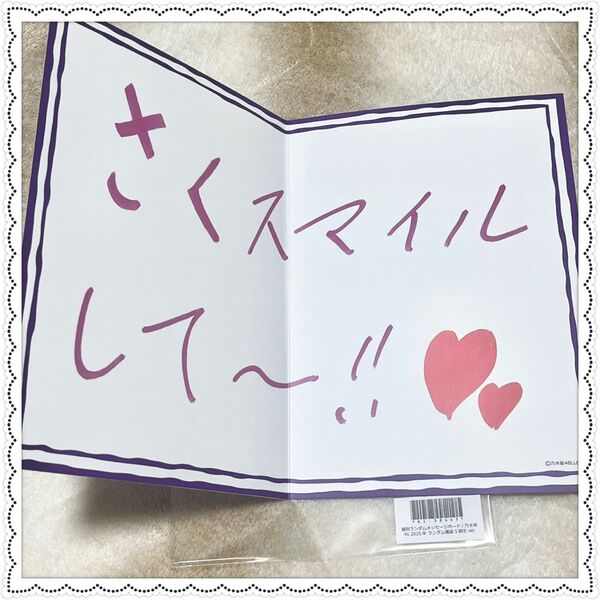 さくスマイル
して〜!!
©乃木坂46LLC
個別ランダムメッセージボード / 乃木坂
46 2025 年 ランダム福袋 5 期生 ver.